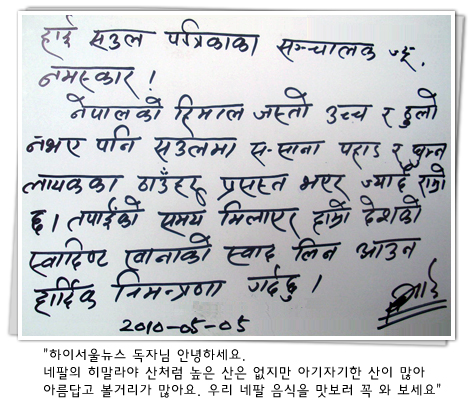 हाई सउल पत्रिकाका सञ्चालक ज्यू.
नमस्कार !
नेपालको हिमाल जस्तो उच्च र ठुलो
नभए पनि सउलमा स-साना पहाड र घुम्न
लायकका ठाउँहरु प्रसस्त भएर ज्यादै राम्रो
छ। तपाईको समय मिलाएर हाम्रो देशको
स्वादिष्ट खानाको स्वाद लिन आउन
हार्दिक निमन्त्रणा गर्दछु ।
2010-05-05
"하이서울뉴스 독자님 안녕하세요.
네팔의 히말라야 산처럼 높은 산은 없지만 아기자기한 산이 많아
아름답고 볼거리가 많아요. 우리 네팔 음식을 맛보러 꼭 와 보세요"